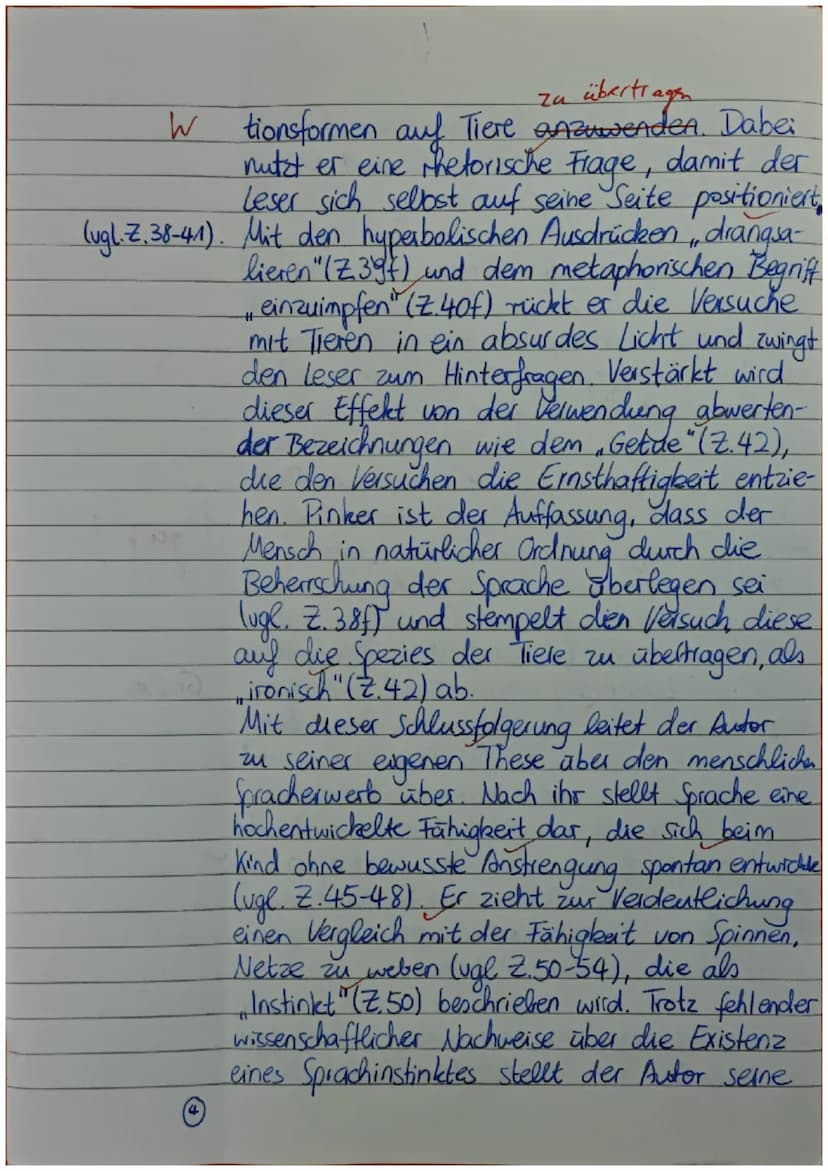 zu übertragen
W tionsformen auf Tiere anzuwenden. Dabei
nutzt er eine rhetorische Frage, damit der
Leser sich selbst auf seine Seite positioniert.
(vgl. Z. 38-41). Mit den hyperbolischen Ausdrücken „drangsa-
lieren" (Z. 39f) und dem metaphorischen Begriff
„einzuimpfen" (Z. 40f) rückt er die Versuche
mit Tieren in ein absurdes Licht und zwingt
den Leser zum Hinterfragen. Verstärkt wird
dieser Effekt von der Verwendung abwerten-
der Bezeichnungen wie dem „Getue" (Z. 42),
die den Versuchen die Ernsthaftigkeit entzie-
hen. Pinker ist der Auffassung, dass der
Mensch in natürlicher Ordnung durch die
Beherrschung der Sprache überlegen sei
(vgl. Z. 38f) und stempelt den Versuch, diese
auf die Spezies der Tiere zu übertragen, als
„ironisch" (Z. 42) ab.
Mit dieser Schlussfolgerung leitet der Autor
zu seiner eigenen These über den menschlichen
Spracherwerb über. Nach ihr stellt Sprache eine
hochentwickelte Fähigkeit dar, die sich beim
Kind ohne bewusste Anstrengung spontan entwickle
(vgl. Z. 45-48). Er zieht zur Verdeutlichung
einen Vergleich mit der Fähigkeit von Spinnen,
Netze zu weben (vgl Z. 50-54), die als
„Instinkt" (Z. 50) beschrieben wird. Trotz fehlender
wissenschaftlicher Nachweise über die Existenz
eines Sprachinstinktes stellt der Autor seine
4